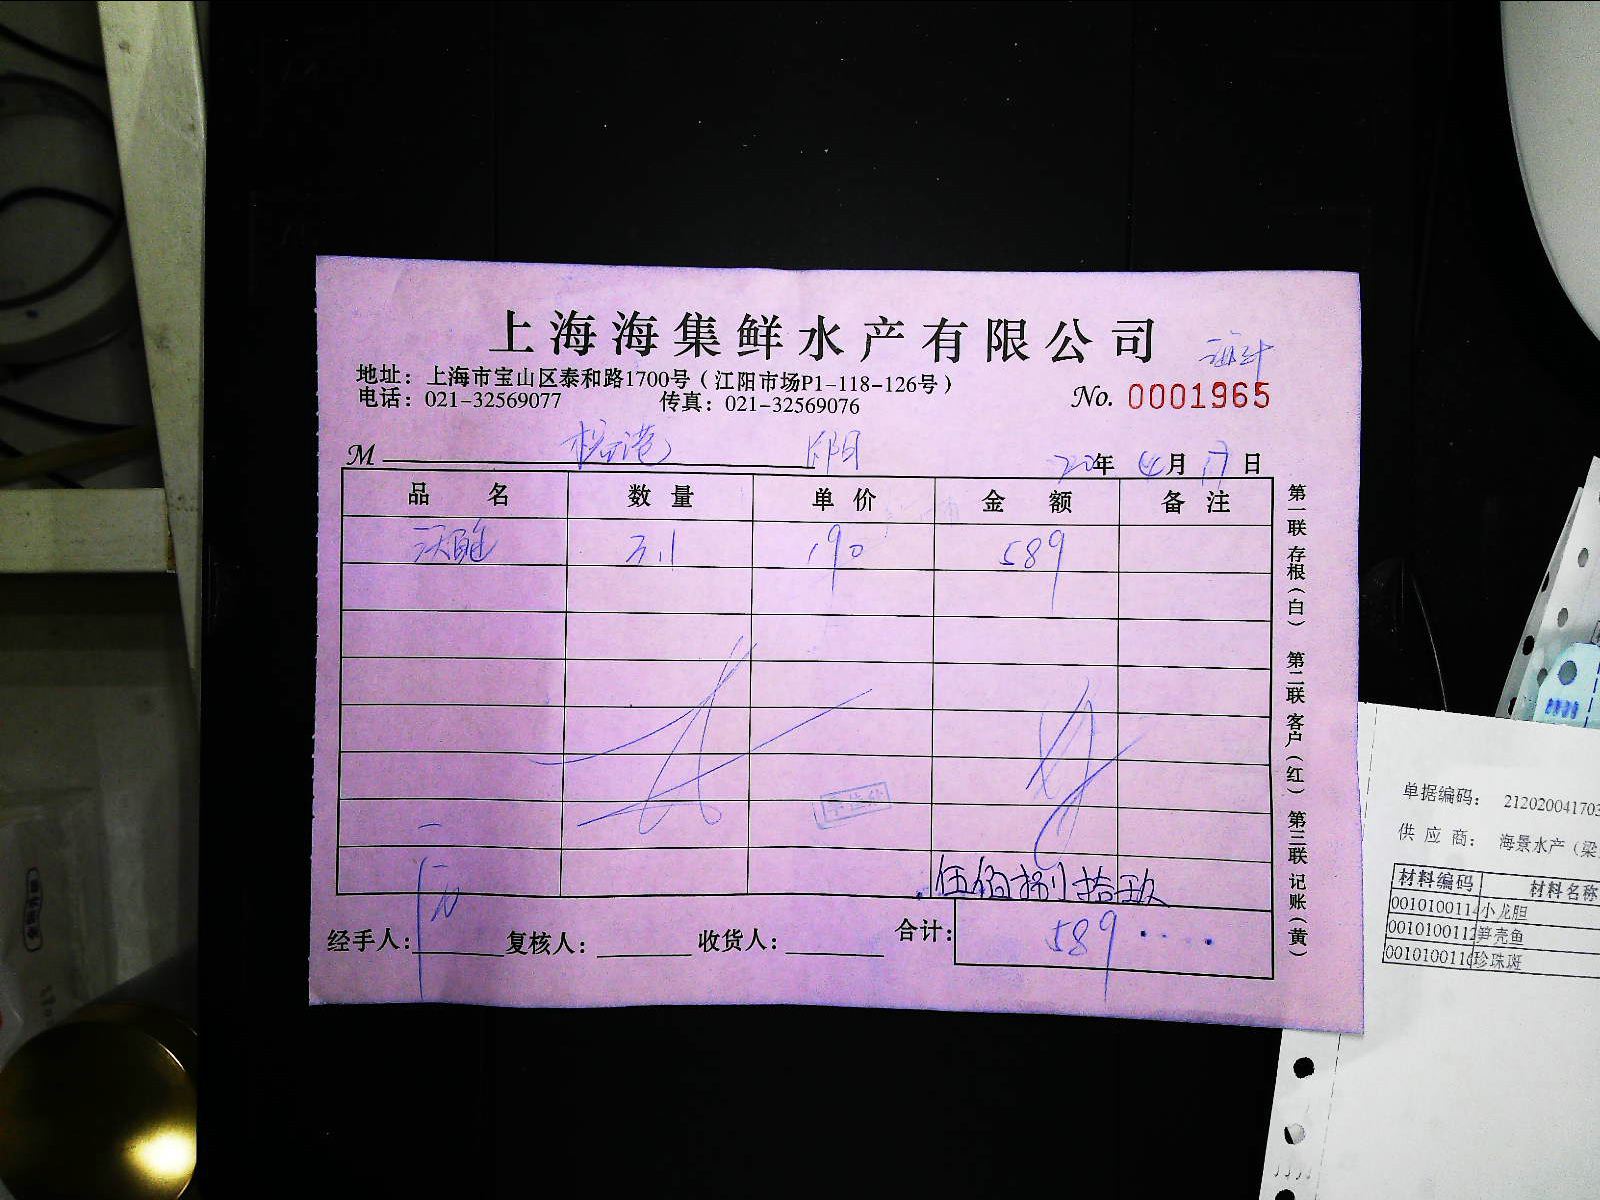 上海海集鲜水产有限公司
地址：上海市宝山区泰和路1700号（江阳市场P1-118-126号）
电话：021-32569077 传真：021-32569076
No. 0001965
M
20年 4月 17日
品名 数量 单价 金额 备注
3.1 190 589
伍佰捌拾玖
合计： 589
经手人： 复核人： 收货人：
第一联 存根（白） 第二联 客户（红） 第三联 记账（黄）
单据编码： 21202004170
供应商： 海景水产（梁
材料编码 材料名称
001010011 小龙胆
001010011 笋壳鱼
001010011 珍珠斑